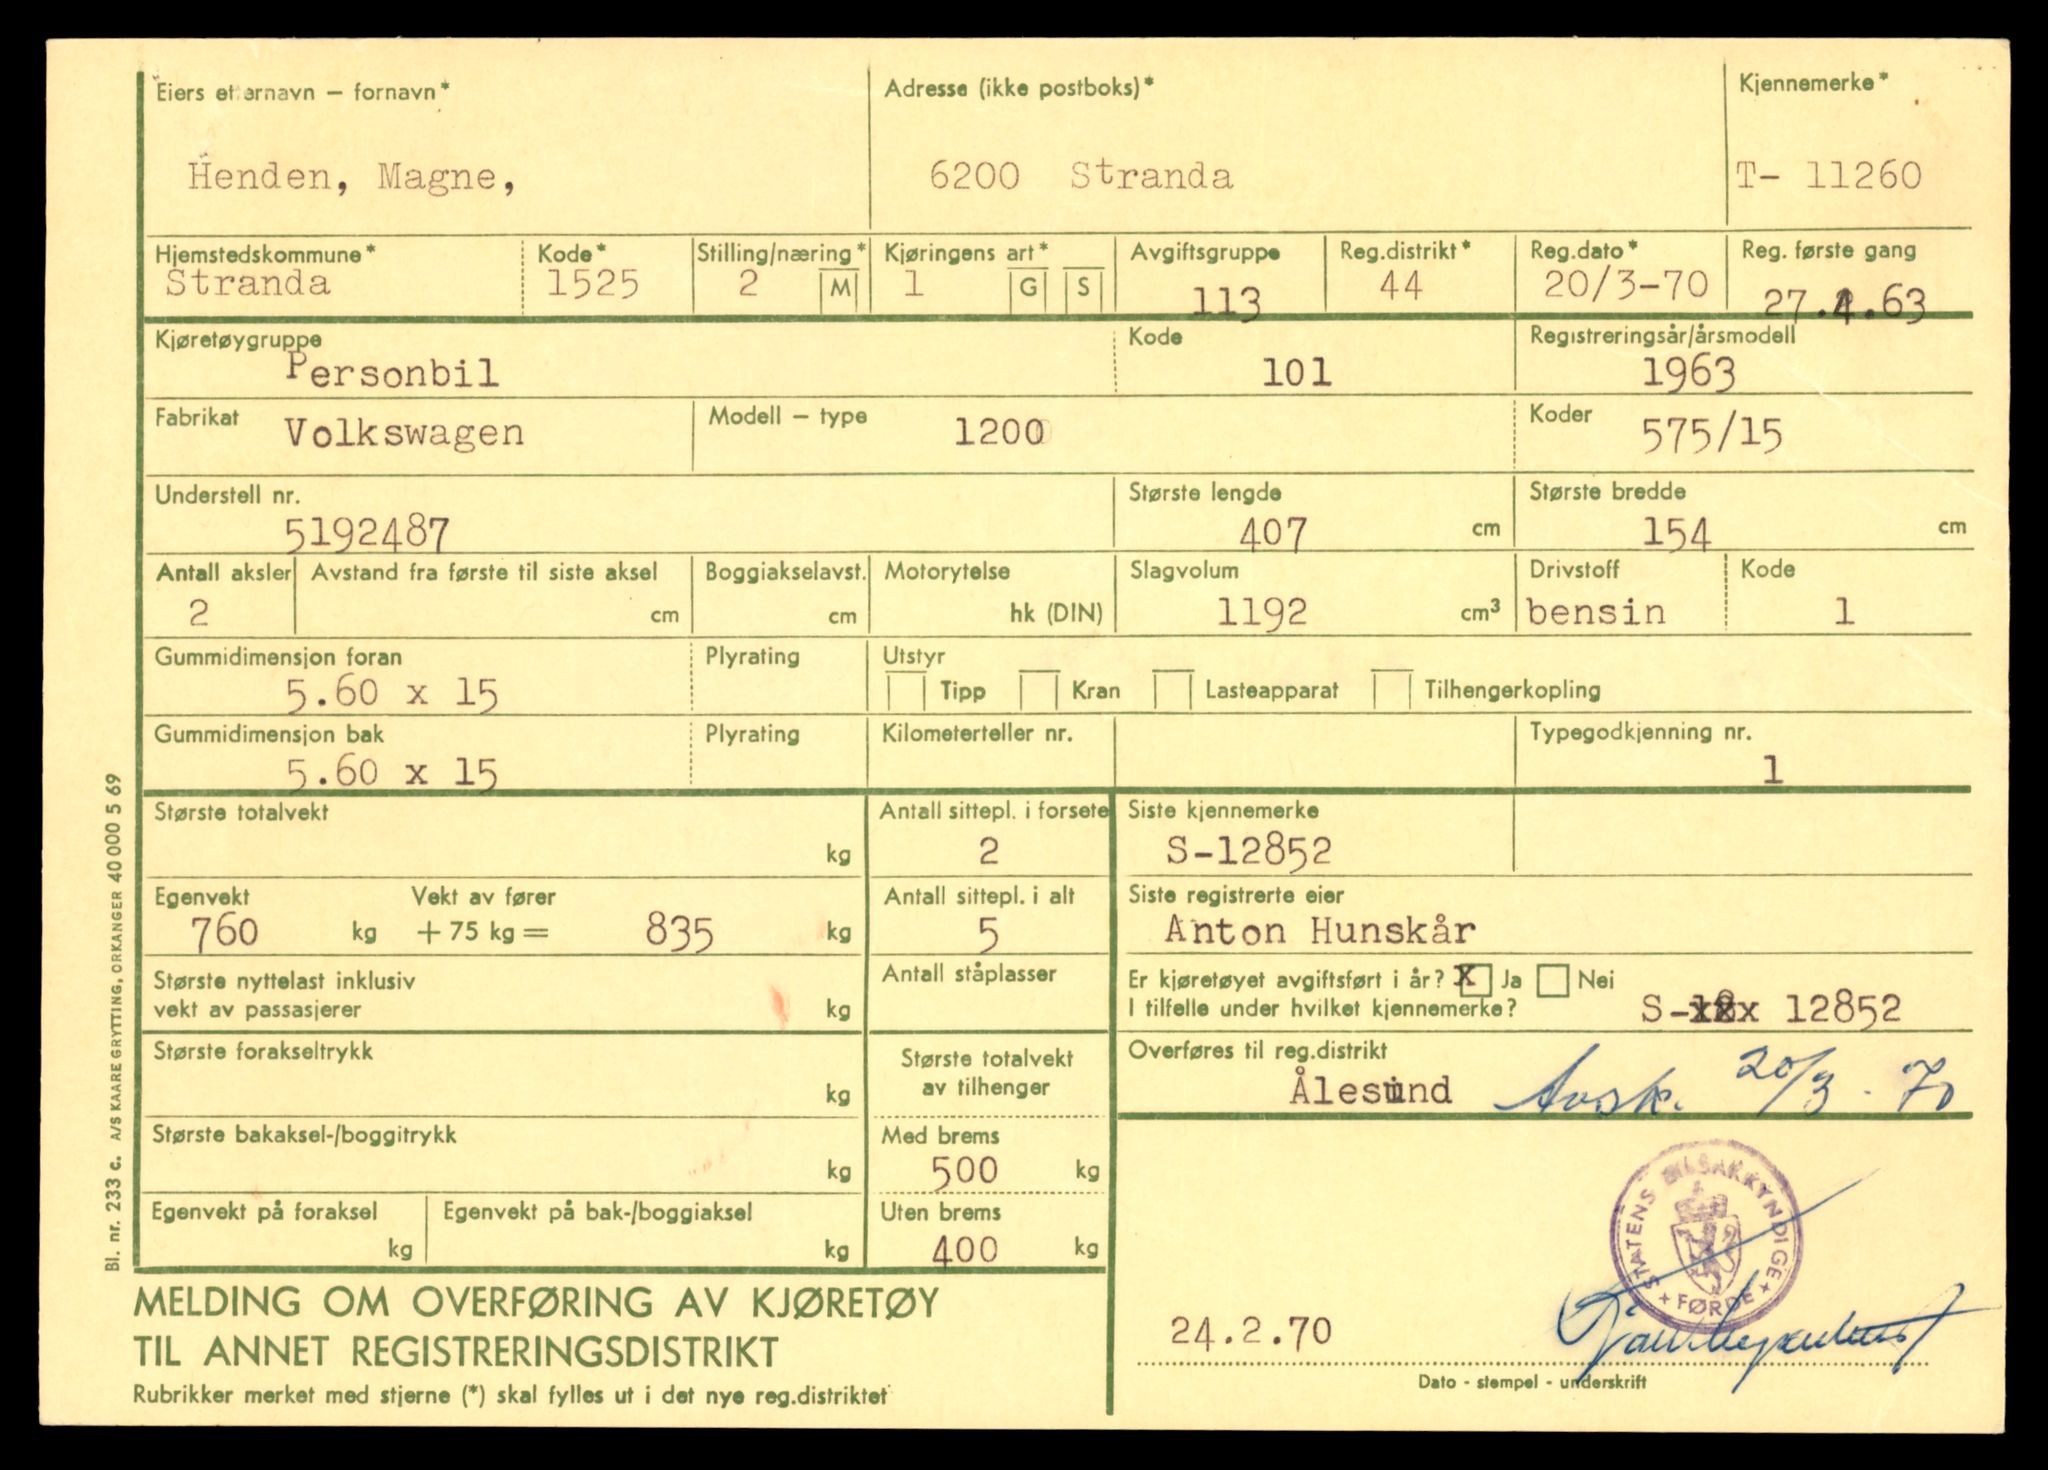 Eiers etternavn – fornavn* Adresse (ikke postboks)* Kjennemerke*
Henden, Magne, 6200 Stranda T- 11260
Hjemstedskommune* Kode* Stilling/næring* Kjøringens art* Avgiftsgruppe Reg.distrikt* Reg.dato* Reg. første gang
Stranda 1525 2 M 1 G S 113 44 20/3-70 27.4.63
Kjøretøygruppe Kode Registreringsår/årsmodell
Personbil 101 1963
Fabrikat Modell – type Koder
Volkswagen 1200 575/15
Understell nr. Største lengde Største bredde
5192487 407 cm 154 cm
Antall aksler Avstand fra første til siste aksel Boggiakselavst. Motorytelse Slagvolum Drivstoff Kode
2 cm cm hk (DIN) 1192 cm³ bensin 1
Gummidimensjon foran Plyrating Utstyr
5.60 x 15 Tipp Kran Lasteapparat Tilhengerkopling
Gummidimensjon bak Plyrating Kilometerteller nr. Typegodkjenning nr.
5.60 x 15 1
Største totalvekt Antall sittepl. i forsete Siste kjennemerke
kg 2 S-12852
Egenvekt Vekt av fører Antall sittepl. i alt Siste registrerte eier
760 kg + 75 kg = 835 kg 5 Anton Hunskår
Største nyttelast inklusiv Antall ståplasser Er kjøretøyet avgiftsført i år? X Ja Nei
vekt av passasjerer kg I tilfelle under hvilket kjennemerke? S- 12852
Største forakseltrykk Største totalvekt Overføres til reg.distrikt
kg av tilhenger Ålesund Avsk. 20/3-70
Største bakaksel-/boggitrykk Med brems
kg 500 kg
Egenvekt på foraksel Egenvekt på bak-/boggiaksel Uten brems
kg kg 400 kg
STATENS BILSAKKYNDIGE
FØRDE
MELDING OM OVERFØRING AV KJØRETØY
TIL ANNET REGISTRERINGSDISTRIKT
24.2.70
Dato - stempel - underskrift
Rubrikker merket med stjerne (*) skal fylles ut i det nye reg.distriktet
Bl. nr. 233 c. A/S KAARE GRYTTING, ORKANGER 40 000 5 69